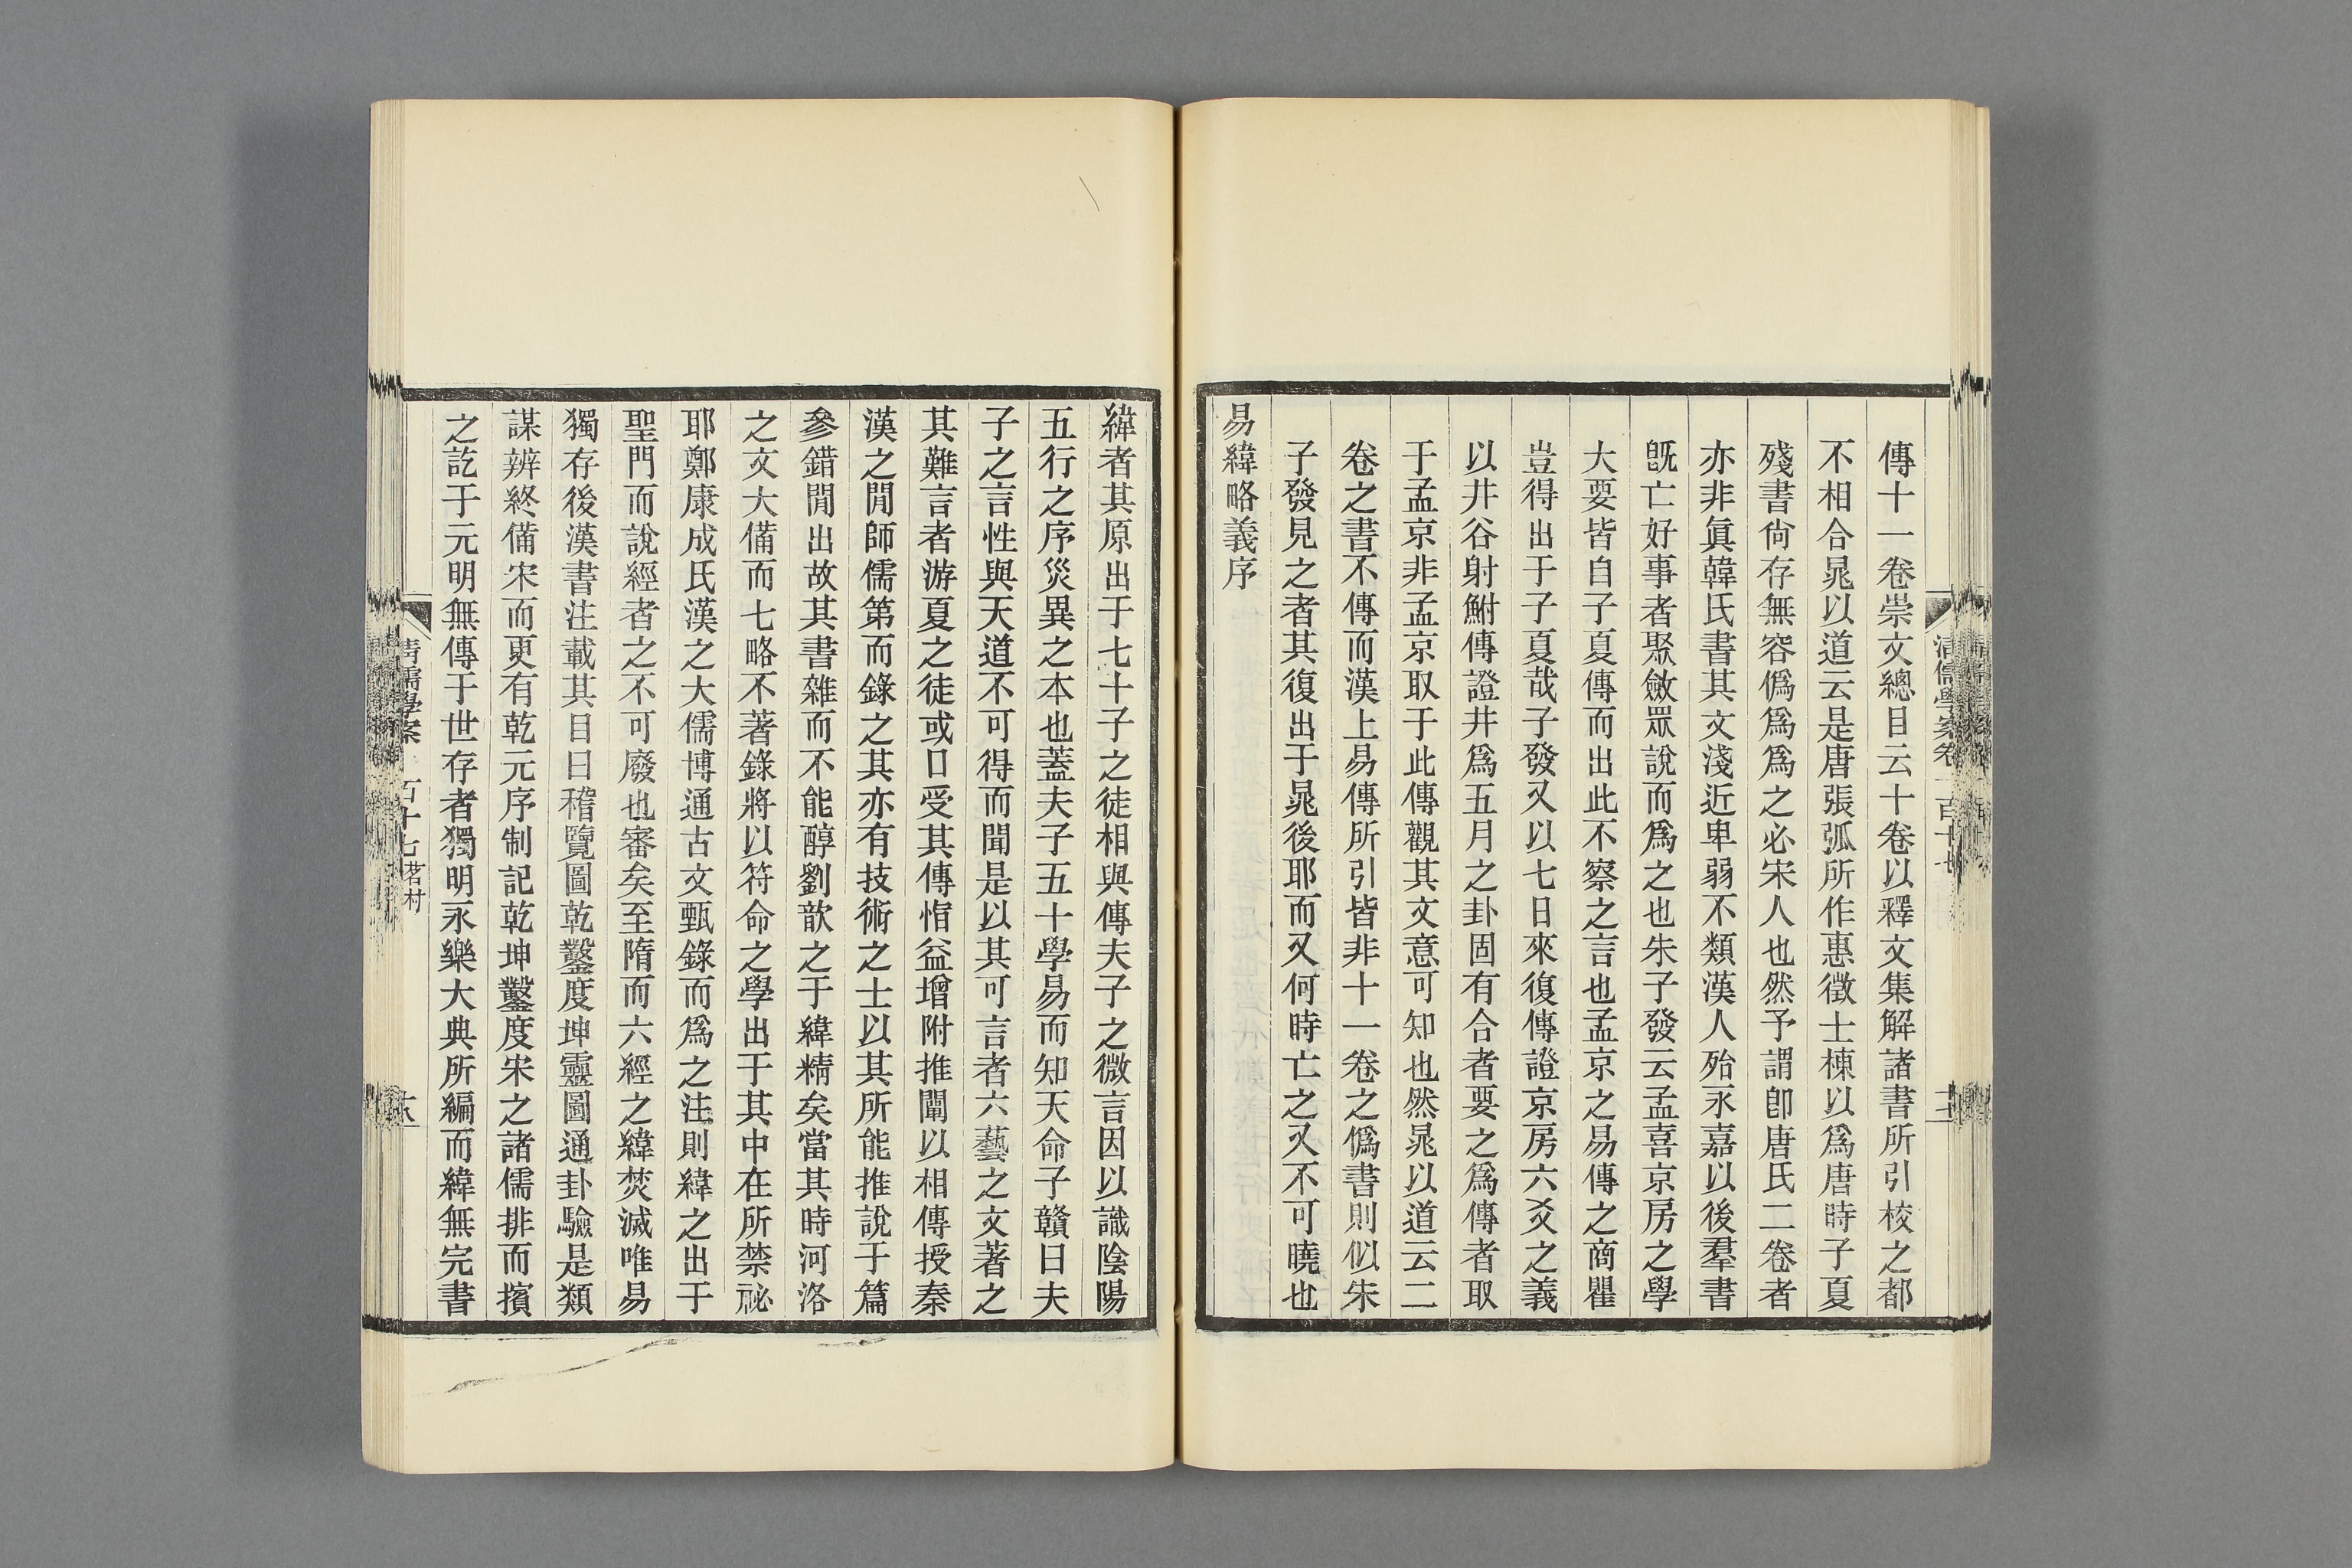 傳十一卷崇文總目云十卷以釋文集解諸書所引校之都
不相合晁以道云是唐張弧所作惠徵士棟以爲唐時子夏
殘書尙存無容僞爲爲之必宋人也然予謂卽唐氏二卷者
亦非眞韓氏書其文淺近卑弱不類漢人殆永嘉以後羣書
旣亡好事者聚斂眾說而爲之也朱子發云孟喜京房之學
大要皆自子夏傳而出此不察之言也孟京之易傳之商瞿
豈得出于子夏哉子發又以七日來復傳證京房六爻之義
以井谷射鮒傳證井爲五月之卦固有合者要之爲傳者取
于孟京非孟京取于此傳觀其文意可知也然晁以道云二
卷之書不傳而漢上易傳所引皆非十一卷之僞書則似朱
子發見之者其復出于晁後耶而又何時亡之又不可曉也
易緯略義序
緯者其原出于七十子之徒相與傳夫子之微言因以識陰陽
五行之序災異之本也蓋夫子五十學易而知天命子贛曰夫
子之言性與天道不可得而聞是以其可言者六藝之文著之
其難言者游夏之徒或口受其傳恉益增附推闡以相傳授秦
漢之閒師儒第而錄之其亦有技術之士以其所能推說于篇
參錯閒出故其書雜而不能醇劉歆之于緯精矣當其時河洛
之文大備而七略不著錄將以符命之學出于其中在所禁祕
耶鄭康成氏漢之大儒博通古文甄錄而爲之注則緯之出于
聖門而說經者之不可廢也審矣至隋而六經之緯焚滅唯易
獨存後漢書注載其目曰稽覽圖乾鑿度坤靈圖通卦驗是類
謀辨終備宋而更有乾元序制記乾坤鑿度宋之諸儒排而擯
之訖于元明無傳于世存者獨明永樂大典所編而緯無完書
清儒學案卷一百十七
清儒學案 百十七茗柯